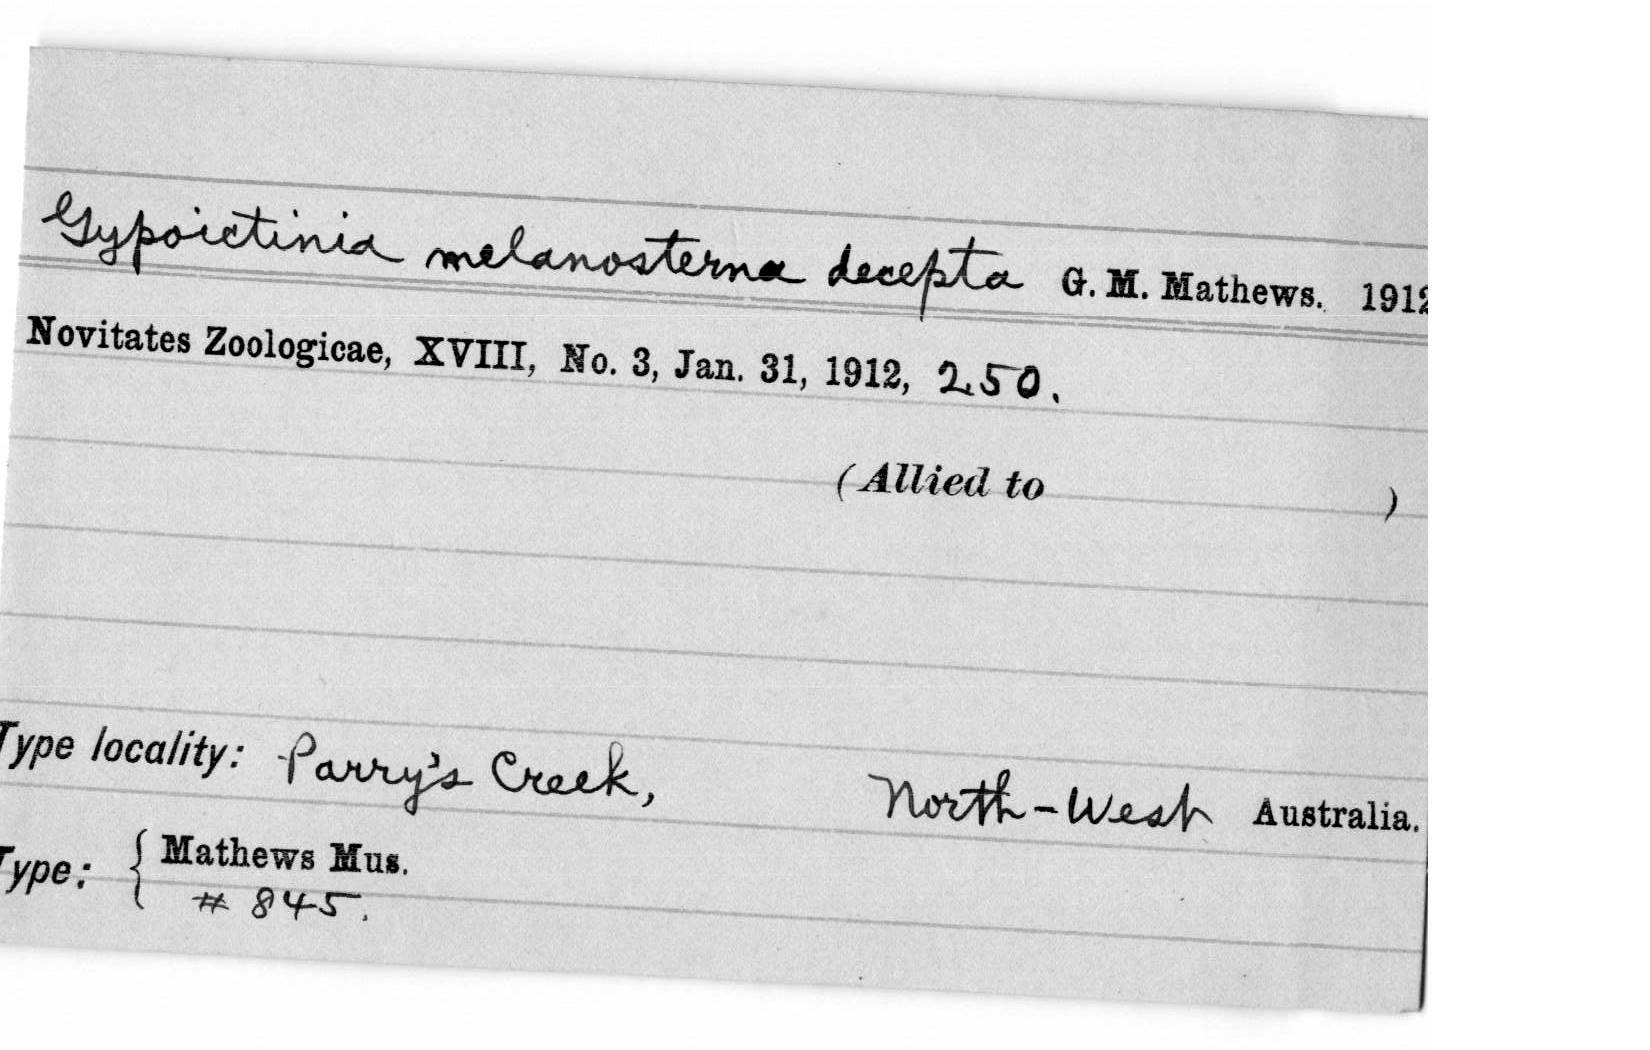 Gypoictinia melanosterna decepta G. M. Mathews. 1912
Novitates Zoologicae, XVIII, No. 3, Jan. 31, 1912, 250.
(Allied to )
Type locality: Parry's Creek, North-West Australia.
Type: { Mathews Mus.
# 845.